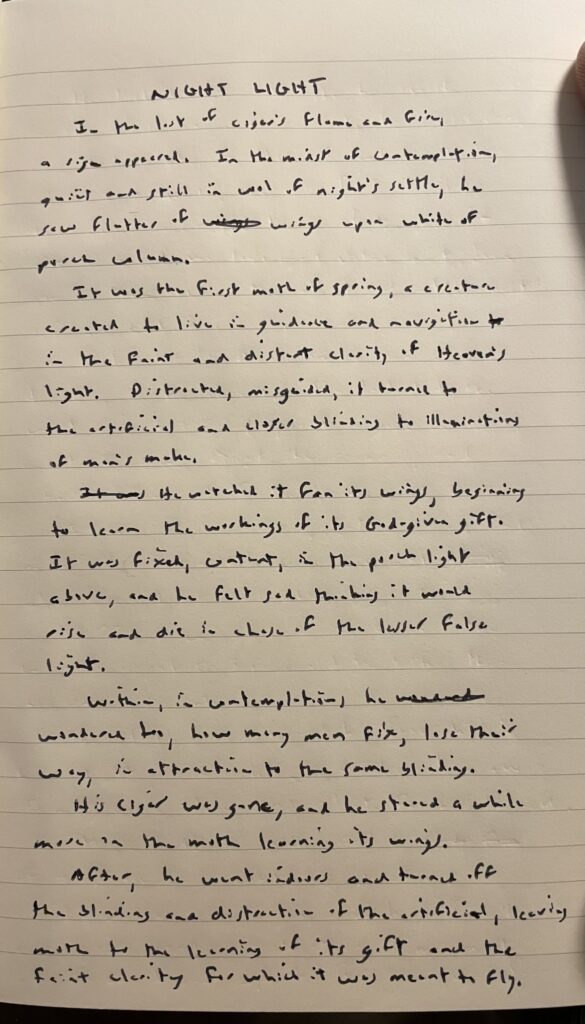 NIGHT LIGHT
In the last of cigar's flame and fire,
a sign appeared. In the midst of contemplation,
quiet and still in cool of night's settle, he
saw flutter of wings wings upon white of
porch column.
It was the first moth of spring, a creature
created to live in guidance and navigation to
in the faint and distant clarity of Heaven's
light. Distracted, misguided, it turned to
the artificial and closer blinding to illuminations
of man's make.
It was He watched it fan its wings, beginning
to learn the workings of its God-given gift.
It was fixed, content, in the porch light
above, and he felt sad thinking it would
rise and die in chase of the lesser false
light.
Within, in contemplations he
wondered too, how many men fix, lose their
way, in attraction to the same blinding.
His cigar was gone, and he stared a while
more on the moth learning its wings.
After, he went indoors and turned off
the blinding and distraction of the artificial, leaving
moth to the learning of its gift and the
faint clarity for which it was meant to fly.